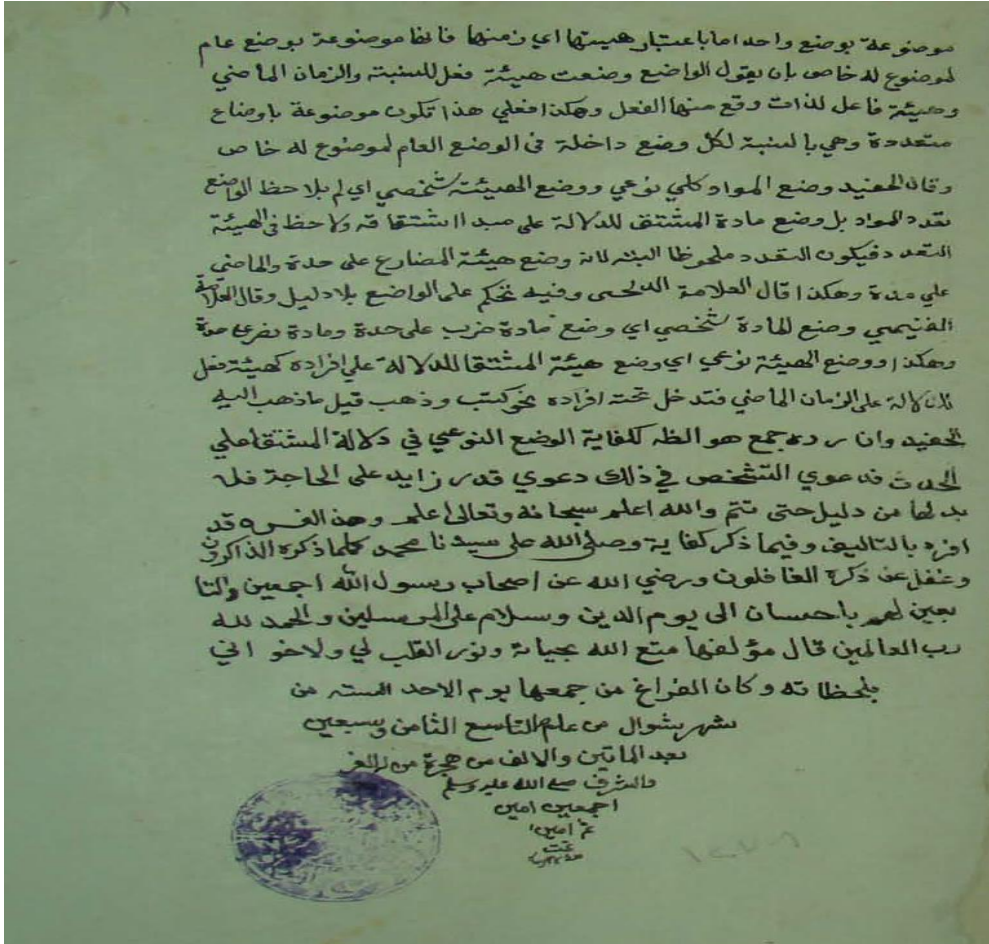 موضوعة بوضع واحد اما باعتبار هيئتها اي زمنها فانها موضوعة بوضع عام
لموضوع له خاص بان يقول الواضع وضعت هيئة فعل للنسبة والزمان الماضي
وهيئة فاعل لذات وقع منها الفعل وهكذا فعلي هذا تكون موضوعة باوضاع
متعددة وهي بالنسبة لكل وضع داخلة في الوضع العام لموضوع له خاص
وقال الحفيد وضع المواد كلي نوعي ووضع الهيئة شخصي اي لم يلاحظ الواضع
تعدد المواد بل وضع مادة المشتق للدلالة على مبدا اشتقاقه ولاحظ في الهيئة
التعدد فيكون التعدد ملحوظا البته لانه وضع هيئة المضارع على حدة والماضي
علي حدة وهكذا قال العلامة وفيه تحكم على الواضع بلا دليل وقال العلامة
الغنيمي وضع المادة شخصي اي وضع مادة ضرب على حدة ومادة نصر على حدة
وهكذا ووضع الهيئة نوعي اي وضع هيئة المشتقا للدلالة علي افراده كهيئة فعل
للدلالة على الزمان الماضي فتدخل تحته افراده نحو كتب وذهب قيل ما ذهب اليه
الحفيد وان رده جمع هو الظ لكفاية الوضع النوعي في دلالة المشتقا علي
الحدث فدعوي التشخص في ذلك دعوي قدر زايد على الحاجة فلا
بد لها من دليل حتى تتم والله اعلم سبحانه وتعالى اعلم وهذا قد
افرد بالتاليف وفيما ذكر كفاية وصلى الله على سيدنا محمد كلما ذكره الذاكرون
وغفل عن ذكره الغافلون ورضي الله عن اصحاب رسول الله اجمعين والتا
بعين لهم باحسان الى يوم الدين وسلام على المرسلين والحمد لله
رب العالمين قال مؤلفها متع الله بحياته ونور القلب لي ولاخواني
بلحظاته وكان الفراغ من جمعها يوم الاحد من
شهر شوال من عام التاسع الثامن وسبعين
بعد الماتين والالف من هجرة من له العز
والشرف صلى الله عليه وسلم
اجمعين امين
تم امين
تمت
١٢٧٨